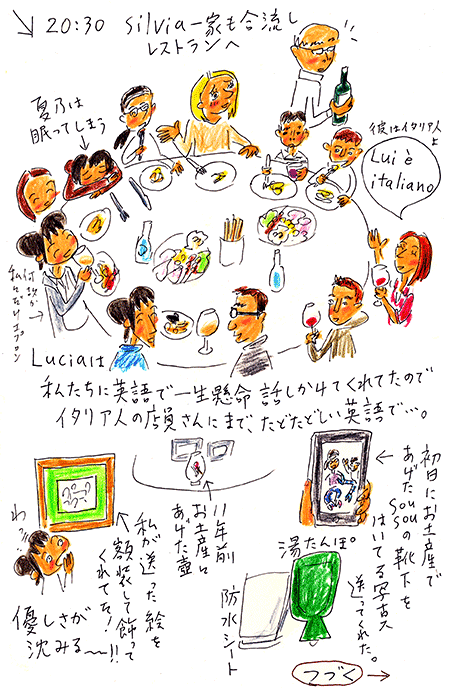 20:30 Silvia一家も合流し
レストランへ
夏乃は
眠ってしまう
彼はイタリア人よ
Lui è
italiano
Luciaは
私たちに英語で一生懸命話しかけてくれてたので
イタリア人の店員さんにまで、たどたどしい英語で…。
初日にお土産で
あげた
SouSouの靴下を
はいてる写真
送ってくれた。
11年前
お土産に
あげた壺
私が送った絵を
額装して飾って
くれてた!
わ
優しさが
沈みる〜!!
湯たんぽ。
防水シート
つづく